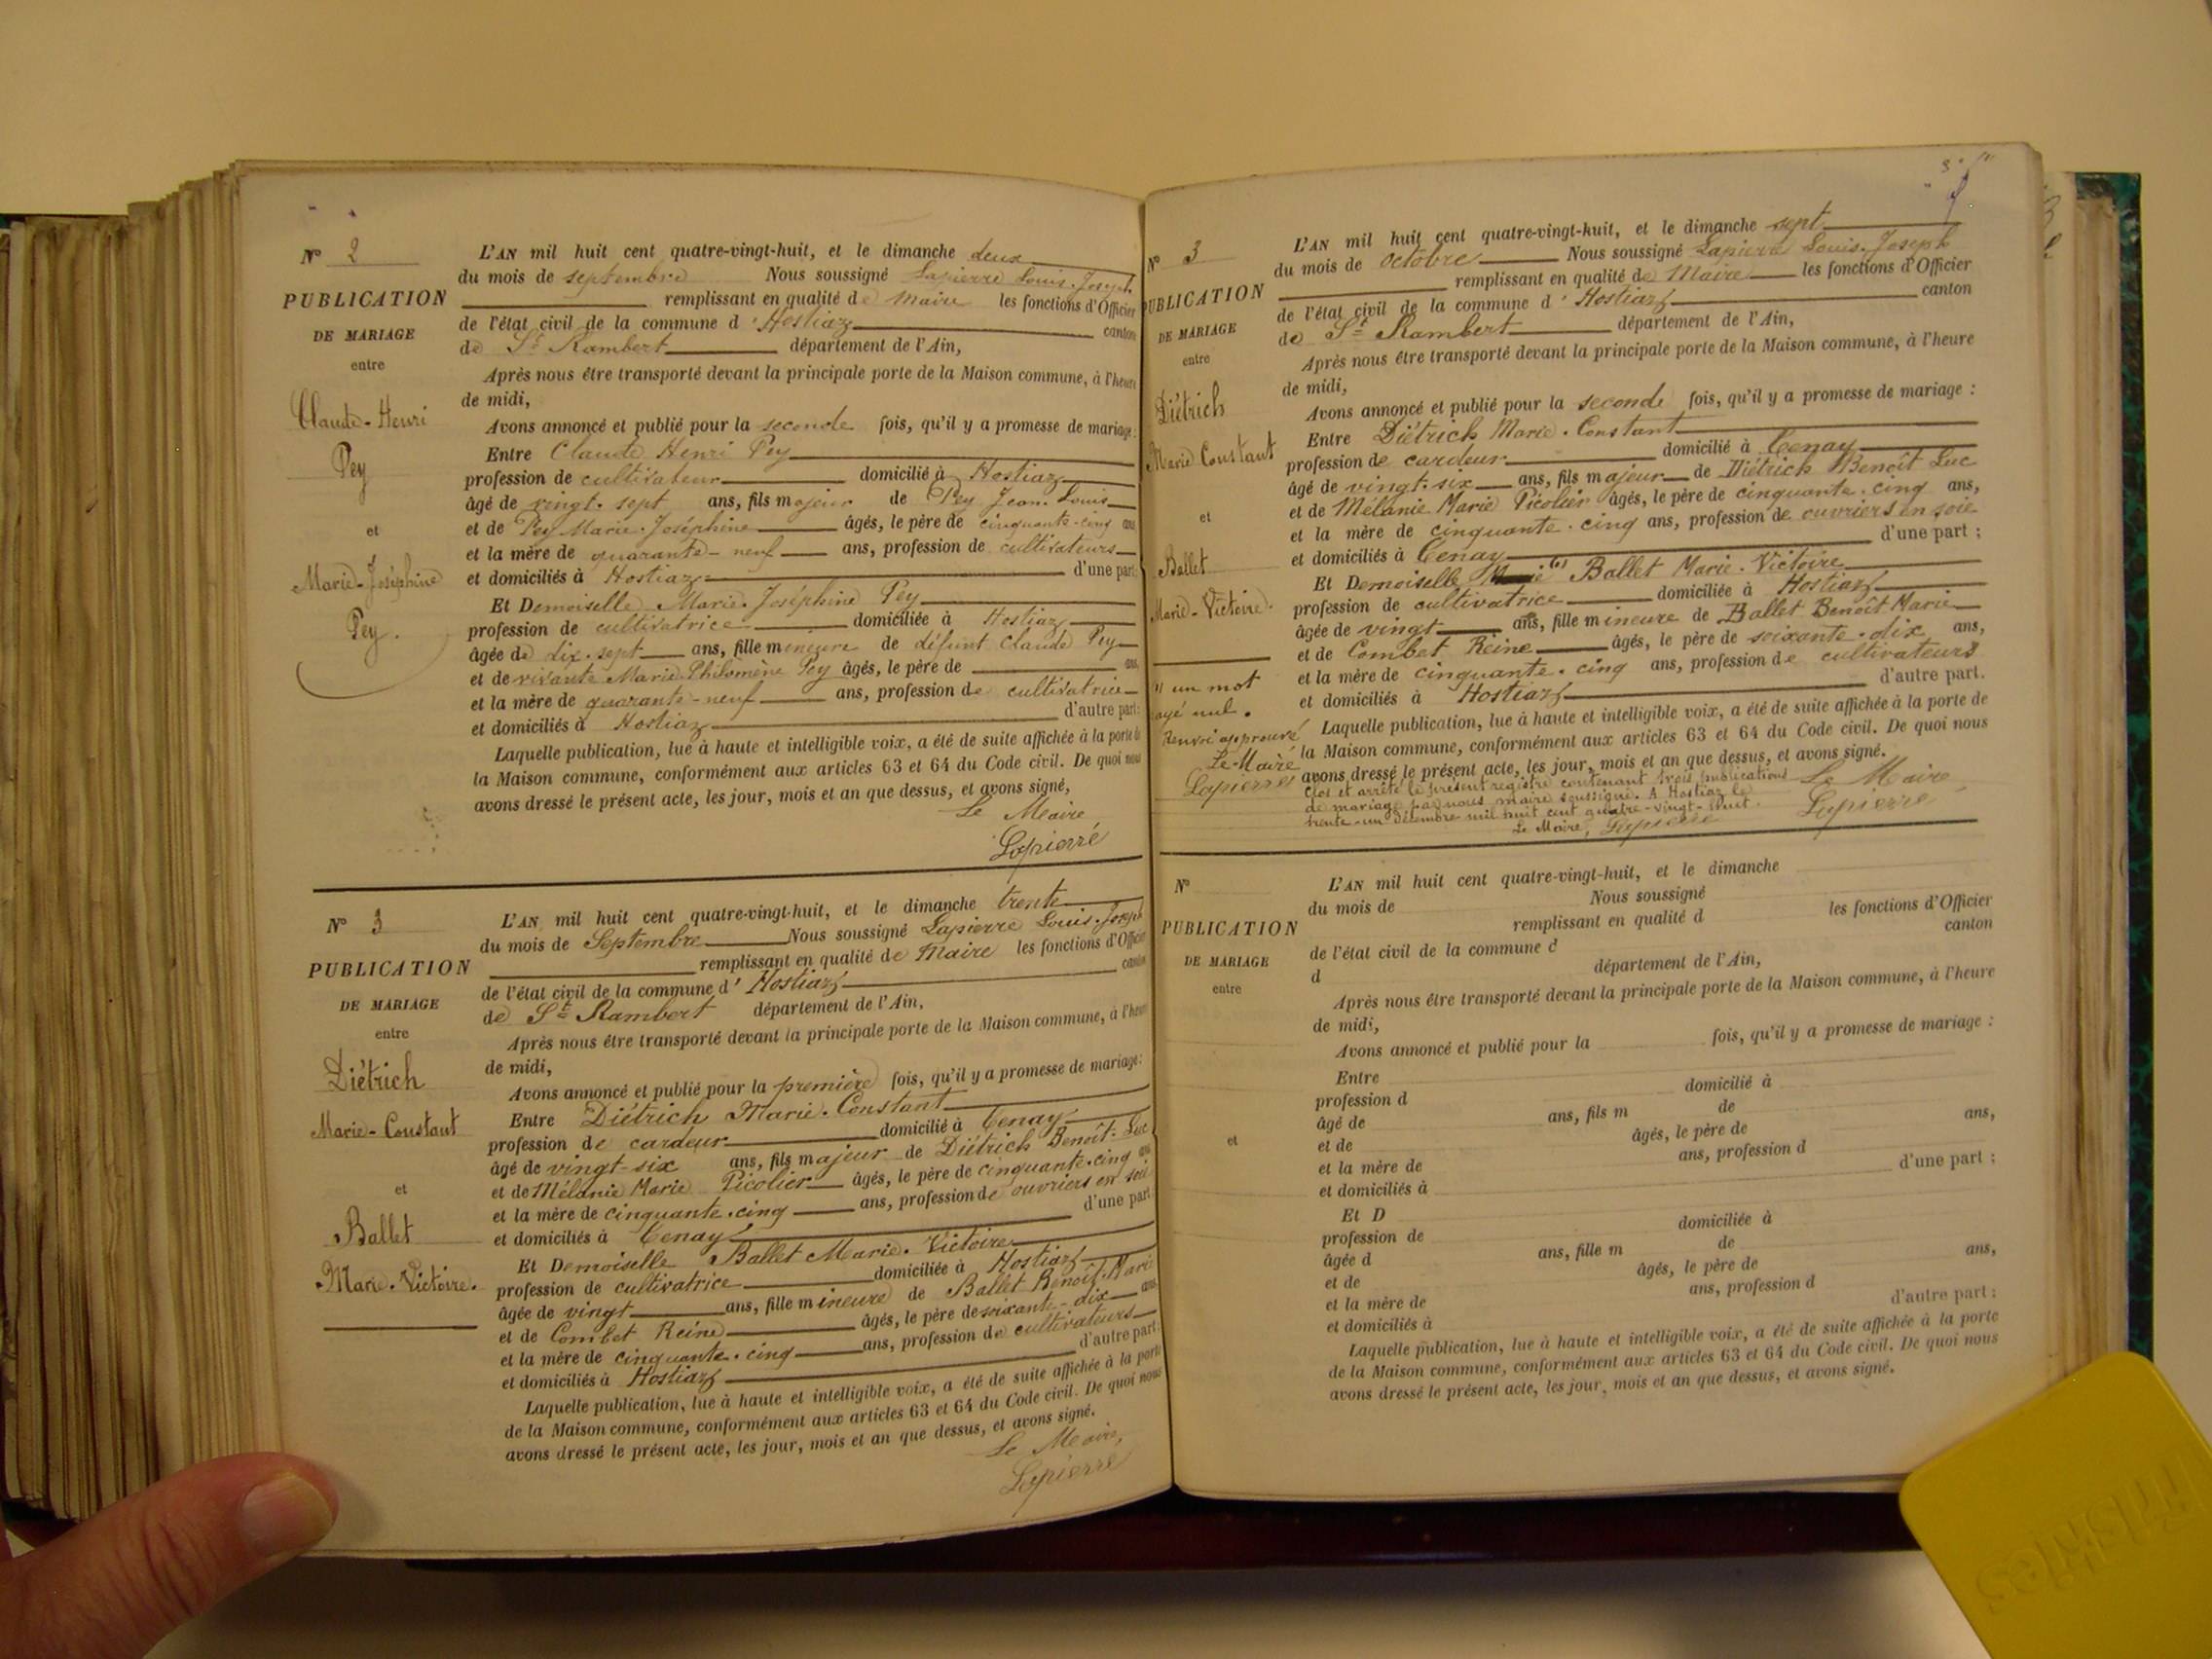 N° 2
PUBLICATION
DE MARIAGE
entre
Claude-Henri
Pey
et
Marie-Joséphine
Pey.
L'AN mil huit cent quatre-vingt-huit, et le dimanche deux
du mois de septembre Nous soussigné Lapierre Louis-Joseph
remplissant en qualité de Maire les fonctions d'Officier
de l'état civil de la commune d'Hostiaz canton
de St Rambert département de l'Ain,
Après nous être transporté devant la principale porte de la Maison commune, à l'heure
de midi,
Avons annoncé et publié pour la seconde fois, qu'il y a promesse de mariage :
Entre Claude Henri Pey
profession de cultivateur domicilié à Hostiaz
âgé de vingt-sept ans, fils majeur de Pey Jean-Louis
et de Pey Marie-Joséphine âgés, le père de cinquante-cinq ans
et la mère de quarante-neuf ans, profession de cultivateurs
et domiciliés à Hostiaz d'une part
Et Demoiselle Marie-Joséphine Pey
profession de cultivatrice domiciliée à Hostiaz
âgée de dix-sept ans, fille mineure de défunt Claude Pey
et de vivante Marie-Philomène Pey âgés, le père de ans,
et la mère de quarante-neuf ans, profession de cultivatrice
et domiciliés à Hostiaz d'autre part:
Laquelle publication, lue à haute et intelligible voix, a été de suite affichée à la porte de
la Maison commune, conformément aux articles 63 et 64 du Code civil. De quoi nous
avons dressé le présent acte, les jour, mois et an que dessus, et avons signé,
Le Maire
Lapierre
N° 3
PUBLICATION
DE MARIAGE
entre
Diétrich
Marie-Constant
et
Ballet
Marie-Victoire.
L'AN mil huit cent quatre-vingt-huit, et le dimanche trente
du mois de Septembre Nous soussigné Lapierre Louis-Joseph
remplissant en qualité de Maire les fonctions d'Officier
de l'état civil de la commune d'Hostiaz canton
de St Rambert département de l'Ain,
Après nous être transporté devant la principale porte de la Maison commune, à l'heure
de midi,
Avons annoncé et publié pour la première fois, qu'il y a promesse de mariage:
Entre Diétrich Marie-Constant
profession de cardeur domicilié à Tenay
âgé de vingt-six ans, fils majeur de Diétrich Benoît-Luc
et de Mélanie Marie Picolier âgés, le père de cinquante-cinq ans
et la mère de cinquante-cinq ans, profession de ouvriers en soie
et domiciliés à Tenay d'une part
Et Demoiselle Ballet Marie-Victoire
profession de cultivatrice domiciliée à Hostiaz
âgée de vingt ans, fille mineure de Ballet Benoît-Marie
et de Combet Reine âgés, le père de soixante-dix ans
et la mère de cinquante-cinq ans, profession de cultivateurs
et domiciliés à Hostiaz d'autre part
Laquelle publication, lue à haute et intelligible voix, a été de suite affichée à la porte
de la Maison commune, conformément aux articles 63 et 64 du Code civil. De quoi nous
avons dressé le présent acte, les jour, mois et an que dessus, et avons signé.
Le Maire,
Lapierre
N° 3
PUBLICATION
DE MARIAGE
entre
Diétrich
Marie Constant
et
Ballet
Marie-Victoire.
un mot
rayé nul.
Renvoi approuvé
Le Maire
Lapierre
L'AN mil huit cent quatre-vingt-huit, et le dimanche sept
du mois de Octobre Nous soussigné Lapierre Louis-Joseph
remplissant en qualité de Maire les fonctions d'Officier
de l'état civil de la commune d'Hostiaz canton
de St Rambert département de l'Ain,
Après nous être transporté devant la principale porte de la Maison commune, à l'heure
de midi,
Avons annoncé et publié pour la seconde fois, qu'il y a promesse de mariage :
Entre Diétrich Marie-Constant
profession de cardeur domicilié à Tenay
âgé de vingt-six ans, fils majeur de Diétrich Benoît Luc
et de Mélanie Marie Picolier âgés, le père de cinquante-cinq ans,
et la mère de cinquante-cinq ans, profession de ouvriers en soie
et domiciliés à Tenay d'une part ;
Et Demoiselle Ballet Marie-Victoire
profession de cultivatrice domiciliée à Hostiaz
âgée de vingt ans, fille mineure de Ballet Benoît Marie
et de Combet Reine âgés, le père de soixante-dix ans,
et la mère de cinquante-cinq ans, profession de cultivateurs
et domiciliés à Hostiaz d'autre part.
Laquelle publication, lue à haute et intelligible voix, a été de suite affichée à la porte de
la Maison commune, conformément aux articles 63 et 64 du Code civil. De quoi nous
avons dressé le présent acte, les jour, mois et an que dessus, et avons signé.
Le Maire
Lapierre
Clos et arrêté le présent registre contenant trois publications
de mariage par nous maire soussigné. A Hostiaz le
trente-un Décembre mil huit cent quatre-vingt-huit.
Le Maire, Lapierre
N°
PUBLICATION
DE MARIAGE
entre
et
L'AN mil huit cent quatre-vingt-huit, et le dimanche
du mois de Nous soussigné
remplissant en qualité d les fonctions d'Officier
de l'état civil de la commune d canton
d département de l'Ain,
Après nous être transporté devant la principale porte de la Maison commune, à l'heure
de midi,
Avons annoncé et publié pour la fois, qu'il y a promesse de mariage :
Entre
profession d domicilié à
âgé de ans, fils m de
et de âgés, le père de ans,
et la mère de ans, profession d
et domiciliés à d'une part ;
Et D
profession de domiciliée à
âgée d ans, fille m de
et de âgés, le père de ans,
et la mère de ans, profession d
et domiciliés à d'autre part ;
Laquelle publication, lue à haute et intelligible voix, a été de suite affichée à la porte
de la Maison commune, conformément aux articles 63 et 64 du Code civil. De quoi nous
avons dressé le présent acte, les jour, mois et an que dessus, et avons signé.
Fiskies